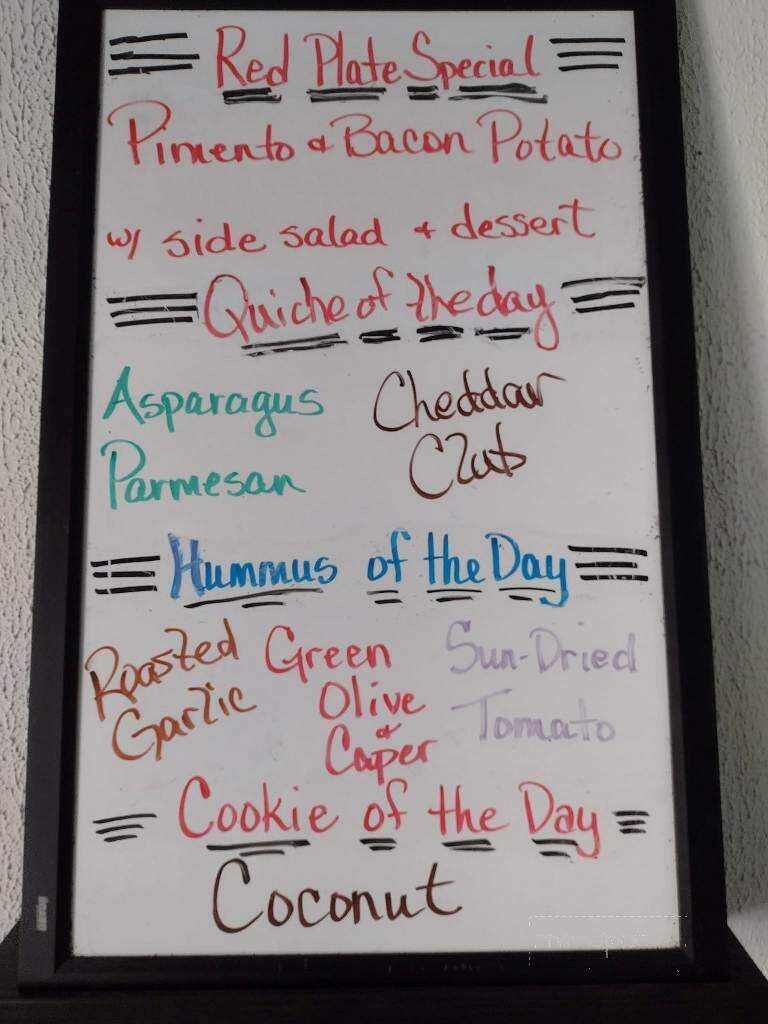 Red Plate Special
Pimento & Bacon Potato
w/ side salad + dessert
Quiche of the day
Asparagus
Parmesan
Cheddar
Club
Hummus of the Day
Roasted
Garlic
Green
Olive
&
Caper
Sun-Dried
Tomato
Cookie of the Day
Coconut